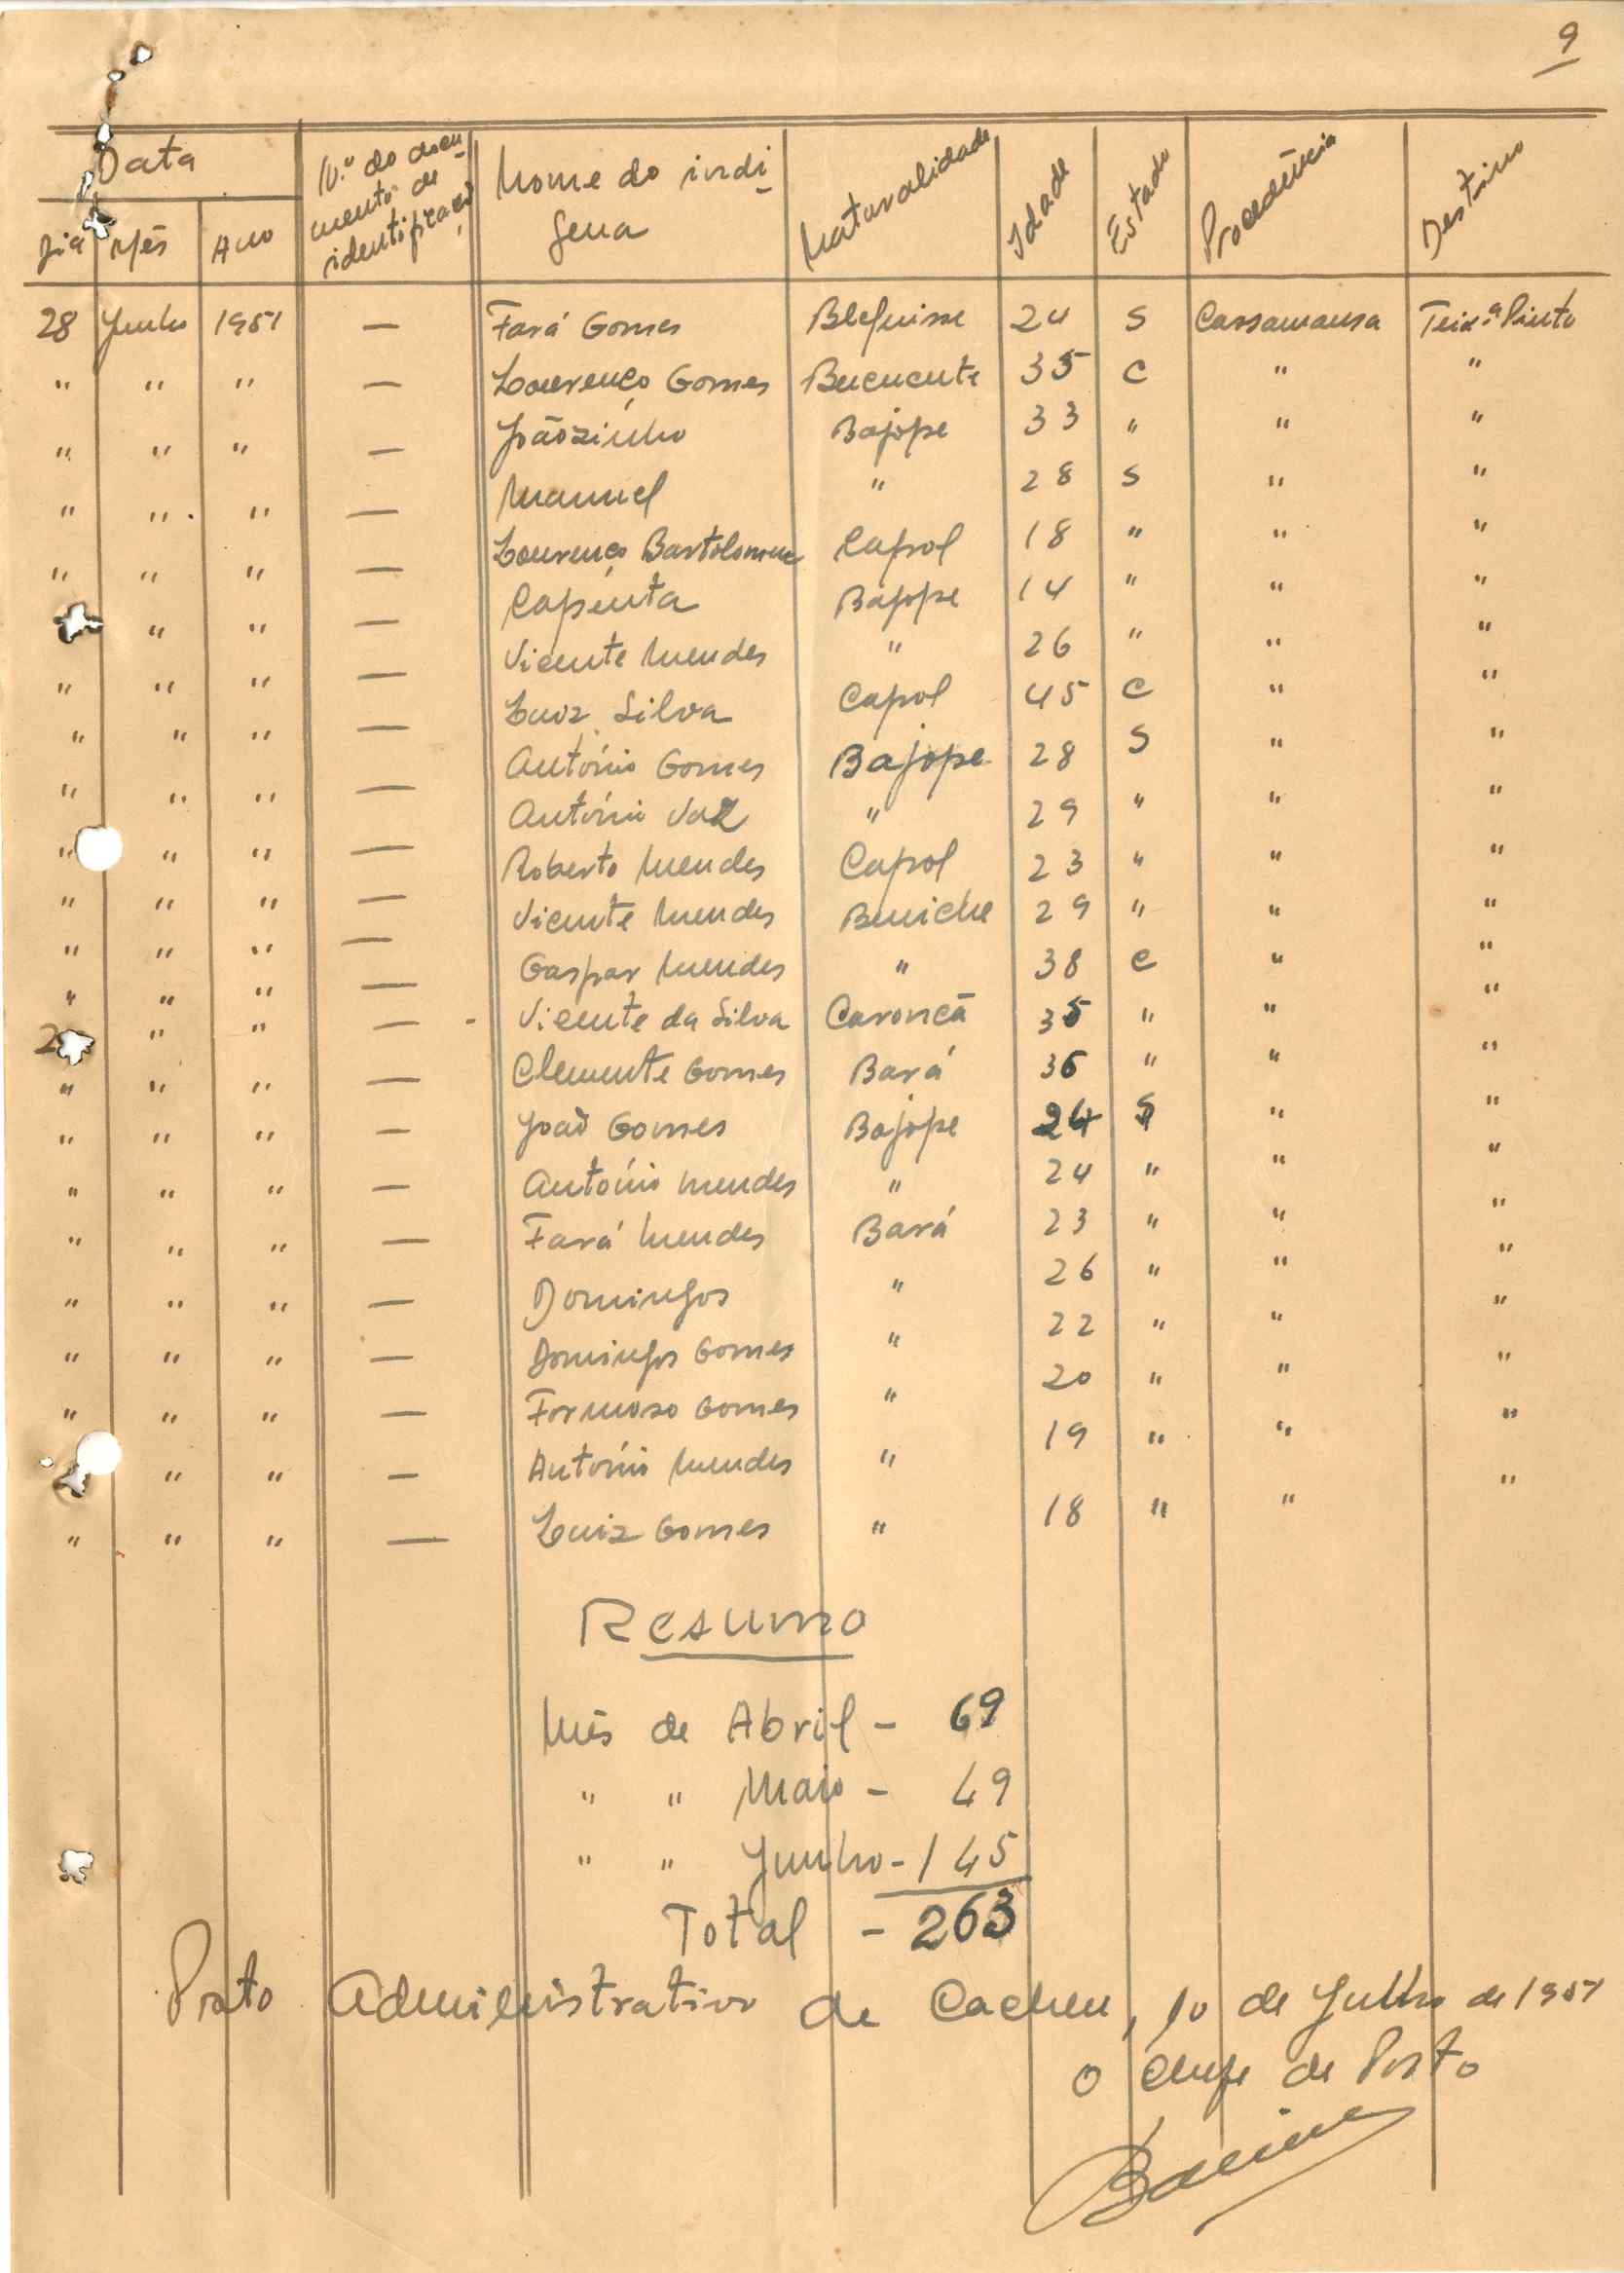 9
Data | N.º do docu- | Nome do indi- | Naturalidade | Idade | Estado | Procedência | Destino
Dia | Mês | Ano | mento de identificação | gena
28 Junho 1951 — Fará Gomes Blefuisse 24 S Cassamansa Teix.ª Pinto
" " " — Lourenço Gomes Bucucute 35 C " "
" " " — Joãozinho Bajope 33 " " "
" " " — Manuel " 28 S " "
" " " — Lourenço Bartolomeu Capol 18 " " "
" " — Capinta Bajope 14 " " "
" " " — Vicente Mendes " 26 " " "
" " " — Luiz Silva Capol 45 C " "
" " " — António Gomes Bajope 28 S " "
" " " — António Vaz " 29 " " "
" " " — Roberto Mendes Capol 23 " " "
" " " — Vicente Mendes Beniche 29 " " "
" " " — Gaspar Mendes " 38 C " "
2 " " — Vicente da Silva Caroncã 35 " " "
" " " — Clemente Gomes Bará 36 " " "
" " " — João Gomes Bajope 24 S " "
" " " — António Mendes " 24 " " "
" " " — Fará Mendes Bará 23 " " "
" " " — Domingos " 26 " " "
" " " — Domingos Gomes " 22 " " "
" " " — Formoso Gomes " 20 " " "
" " — António Mendes " 19 " " "
" " " — Luiz Gomes " 18 " " "
Resumo
Mês de Abril - 69
" " Maio - 49
" " Junho - 145
Total - 263
Posto Administrativo de Cacheu, 10 de Julho de 1951
O Chefe de Posto